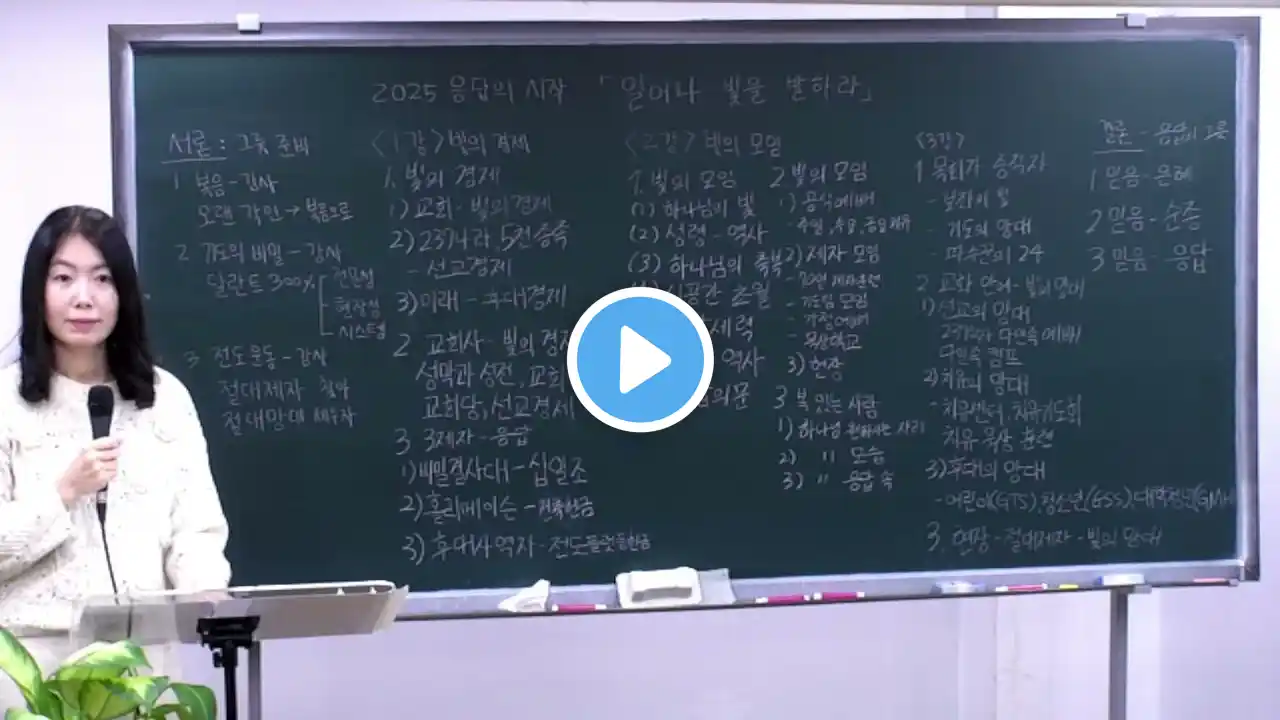 2025 응답의 시작 「일어나 빛을 발하라」
서론 : 그릇 준비
1 복음 - 감사
오랜 각인 → 복음으로
2 기도의 비밀 - 감사
달란트 300%
전문성
현장성
시스템
3 전도운동 - 감사
절대제자 찾아
절대망대 세우자
<1강> 빛의 경제
1. 빛의 경제
1) 교회 - 빛의 경제
2) 237나라, 5천종족
- 선교경제
3) 미래 - 후대경제
2 교회사 - 빛의
성막과 성전, 교회
교회당, 선교경제
3 3제자 - 응답
1) 비밀결사대 - 십일조
2) 홀리메이슨 - 건축헌금
3) 후대사역자 - 전도플랫폼헌금
<2강> 빛의 모임
1. 빛의 모임
(1) 하나님의 빛
(2) 성령 - 역사
(3) 하나님의 축복
시공간 초월
세력
역사
의문
2 빛의 모임
1) 공식예배
2) 제자 모임
기도회 모임
- 가정예배
3) 현장
3 복 있는 사람
1) 하나님 원하시는 자리
2) 〃 모습
3) 〃 응답 속
<3강>
1 목회자 중직자
- 기도의 망대
- 파수꾼의 24
2 교회 안에 - 빛의 망대
1) 선교의 망대
237나라 다민족 예배
다민족 캠프
2) 치유의 망대
- 치유센터, 치유기도회
치유 묵상 훈련
3) 후대의 망대
- 어린이(GTS), 청소년(GSS), 대학청년(GMH
3. 현장 - 절대제자 - 빛의 망대
결론 - 응답의 그릇
1 믿음 - 은혜
2 믿음 - 순종
3 믿음 - 응답